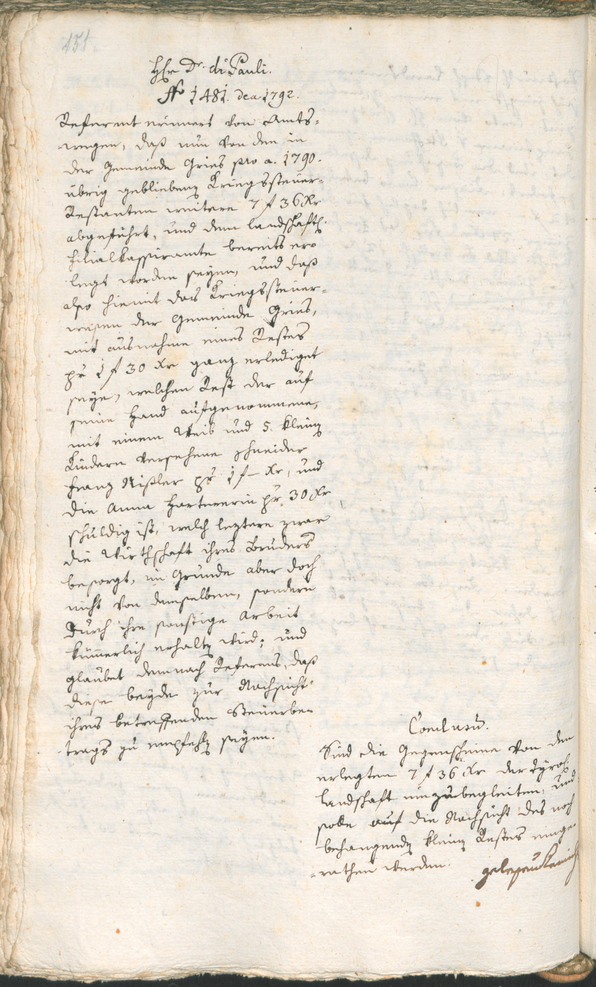 151.
Hr. Dr. di Pauli.
No 1481. de a. 1792.
Referent erinnert von Amts-
wegen, daß nun von den in
der Gemeinde Gries pro a. 1790.
übrig gebliebenen Kriegssteuer-
Restanten weitere 7 f 36 Xr
abgeführt, und dem landschaftl.
Filialkassieramte bereits er-
legt worden seyen, und daß
also hiemit das Kriegssteuer-
wesen der Gemeinde Gries,
mit ausnahme eines Restes
pr 1 f 30 Xr ganz erlediget
seye, welchen Rest der auf
seine Hand aufgenommene,
mit einem Weib und 5. kleinen
Kindern versehene Schneider
Franz Mißler pr 1 f – Xr, und
die Anna Hartnerin pr. 30 Xr
schuldig ist, welch leztere zwar
die Wirthschaft ihres Bruders
besorgt, im Grunde aber doch
nicht von demselben, sondern
durch ihre sonstige Arbeit
kümerlich erhalten wird; und
glaubet demnach Referens, daß
diese beyde zur Nachsicht
ihres betreffenden Steuerbe-
trags zu empfehlen seyen.
Conclusum.
Sind die Gegenscheine von den
erlegten 7 f 36 Xr der Tyrol.
Landschaft einzubegleiten, und
solle auf die Nachsicht des noch
behangenden kleinen Restes einge-
rathen werden.